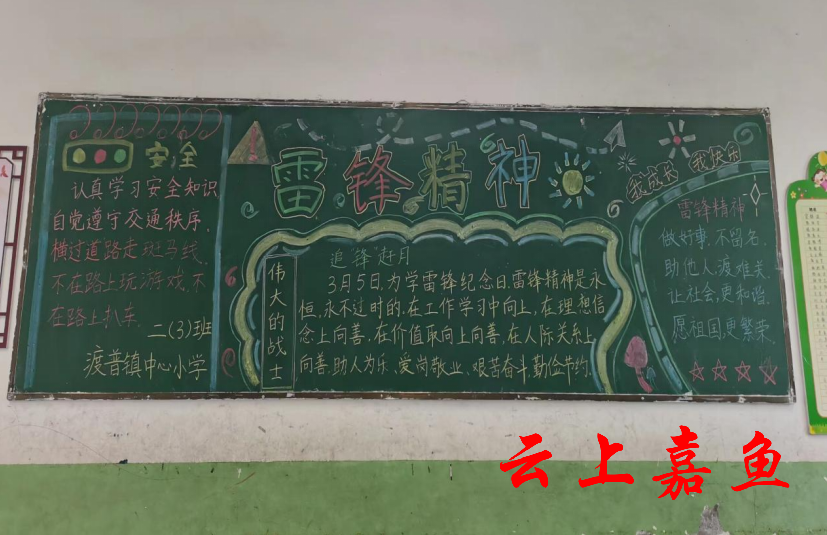 安全
认真学习安全知识
自觉遵守交通秩序.
横过道路走斑马线.
不在路上玩游戏.不
在路上扒车.
二(3)班
渡普镇中心小学
雷锋精神
伟大的战士
追"锋"赶月
3月5日,为学雷锋纪念日.雷锋精神是永
恒,永不过时的.在工作学习中向上,在理想信
念上向善,在价值取向上向善,在人际关系上
向善.助人为乐、爱岗敬业、艰苦奋斗.勤俭节约.
我成长 我快乐
雷锋精神
做好事,不留名.
助他人,渡难关.
让社会,更和谐.
愿祖国,更繁荣.
云上嘉鱼